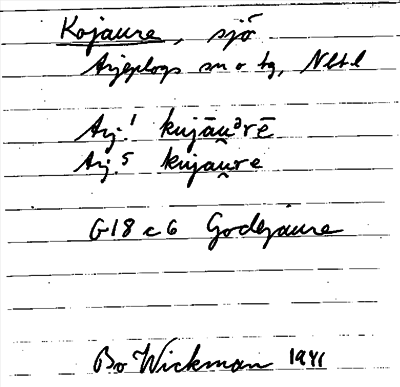 Kojaure, sjö
Arjeplogs sn o tg, Nbtl
Arj.¹ kujāu̯ᵊrē
Arj.⁵ kujau̯re
G18 c 6 Godejaure
Bo Wickman 1941